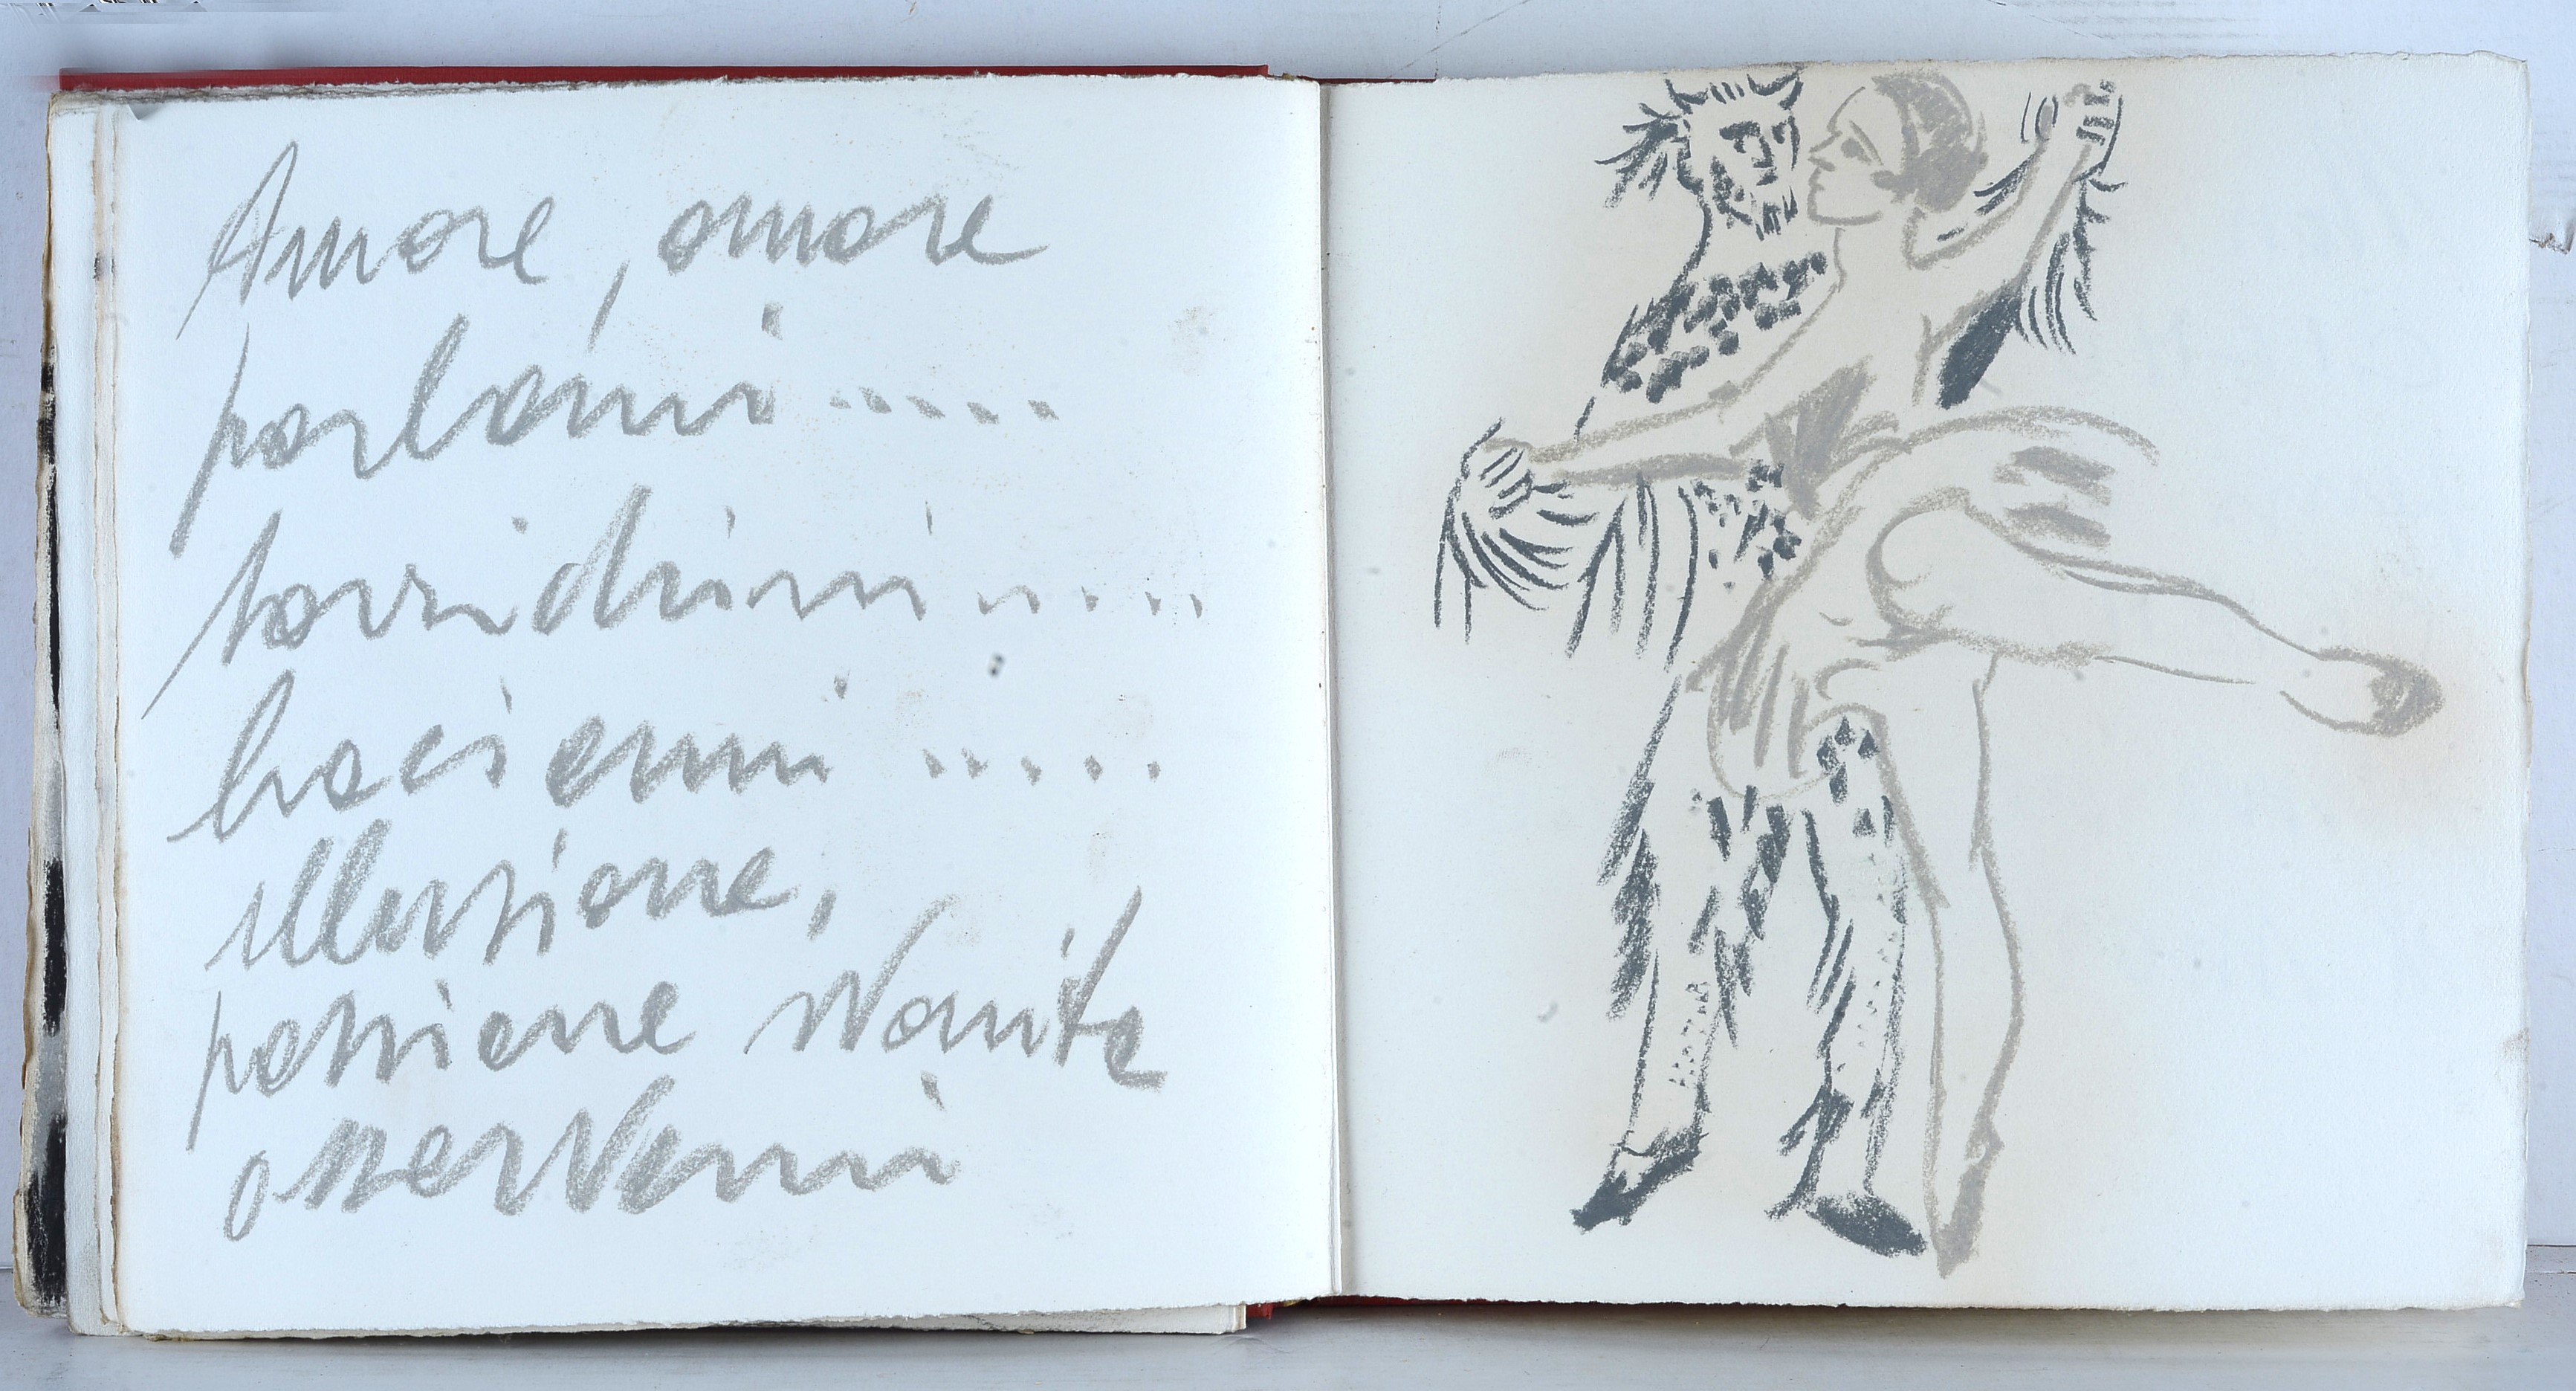 Amore, amore
parlami.....
sorridimi.....
baciami.....
illusione,
passione svanita
osservami